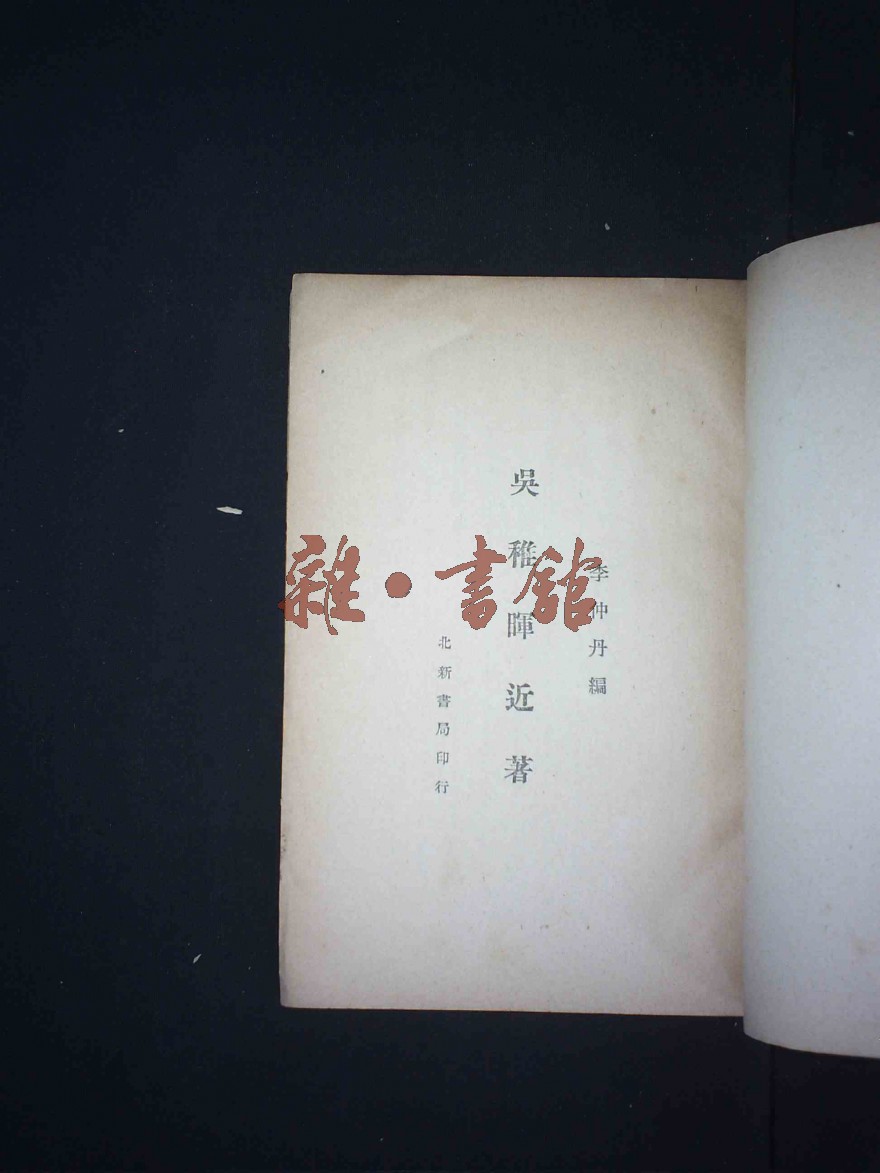 李仲丹編
吳稚暉近著
北新書局印行
雜·書館